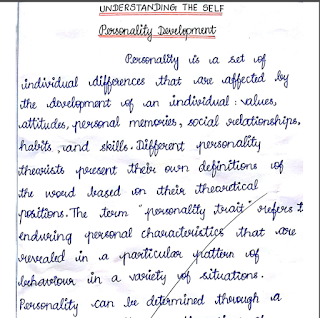 UNDERSTANDING THE SELF
Personality Development
Personality is a set of
individual differences that are affected by
the development of an individual: values,
attitudes, personal memories, social relationships,
habits, and skills. Different personality
theorists present their own definitions of
the word based on their theoretical
positions. The term "personality trait" refers t
enduring personal characteristics that are
revealed in a particular pattern of
behaviour in a variety of situations.
Personality can be determined through a